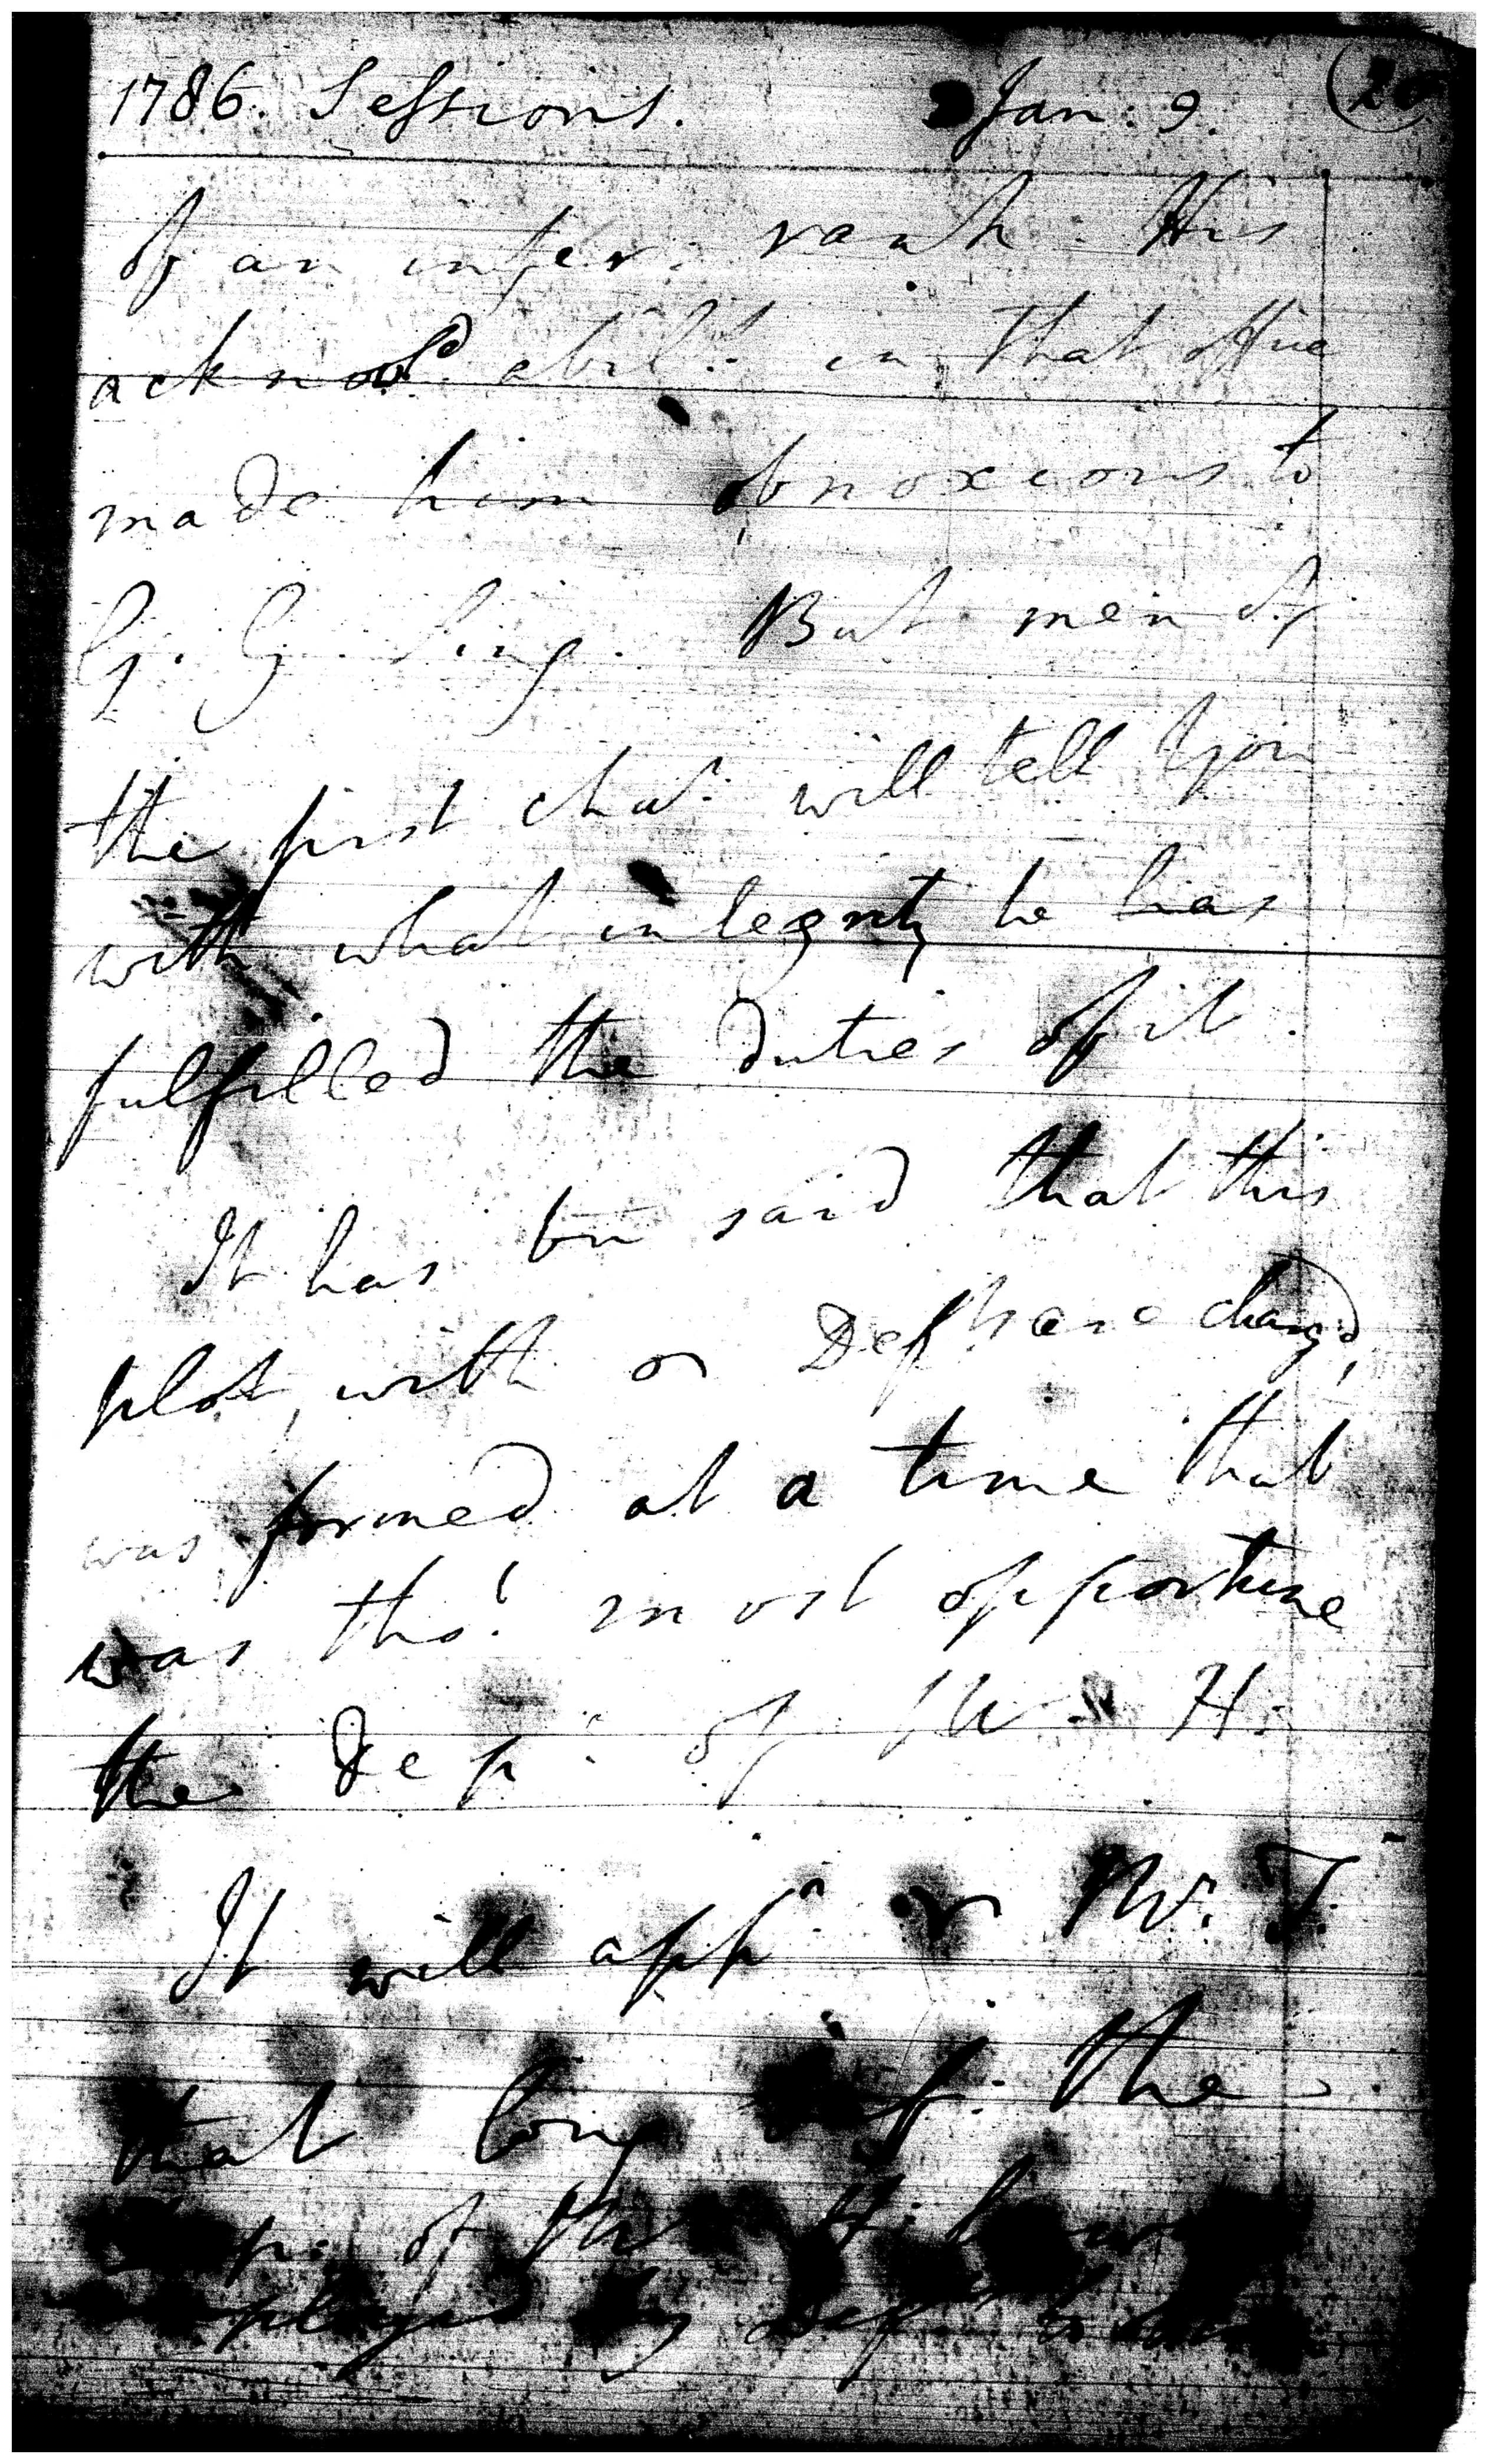 1786. Sessions. Jan. 9.
of an infer. rank. His
acknowd abil: in that office
made him obnoxious to
G. G. Sing. But men of
the first char will tell you
with what integrity he has
fulfilled the duties of it.
It has bn said that this
plot, with Deft have chargd,
was formed at a time that
was tho! most opportune
the Dep: of Mr H:
It will app Mr. T.
that long bef. the
of Mr H: he was
by